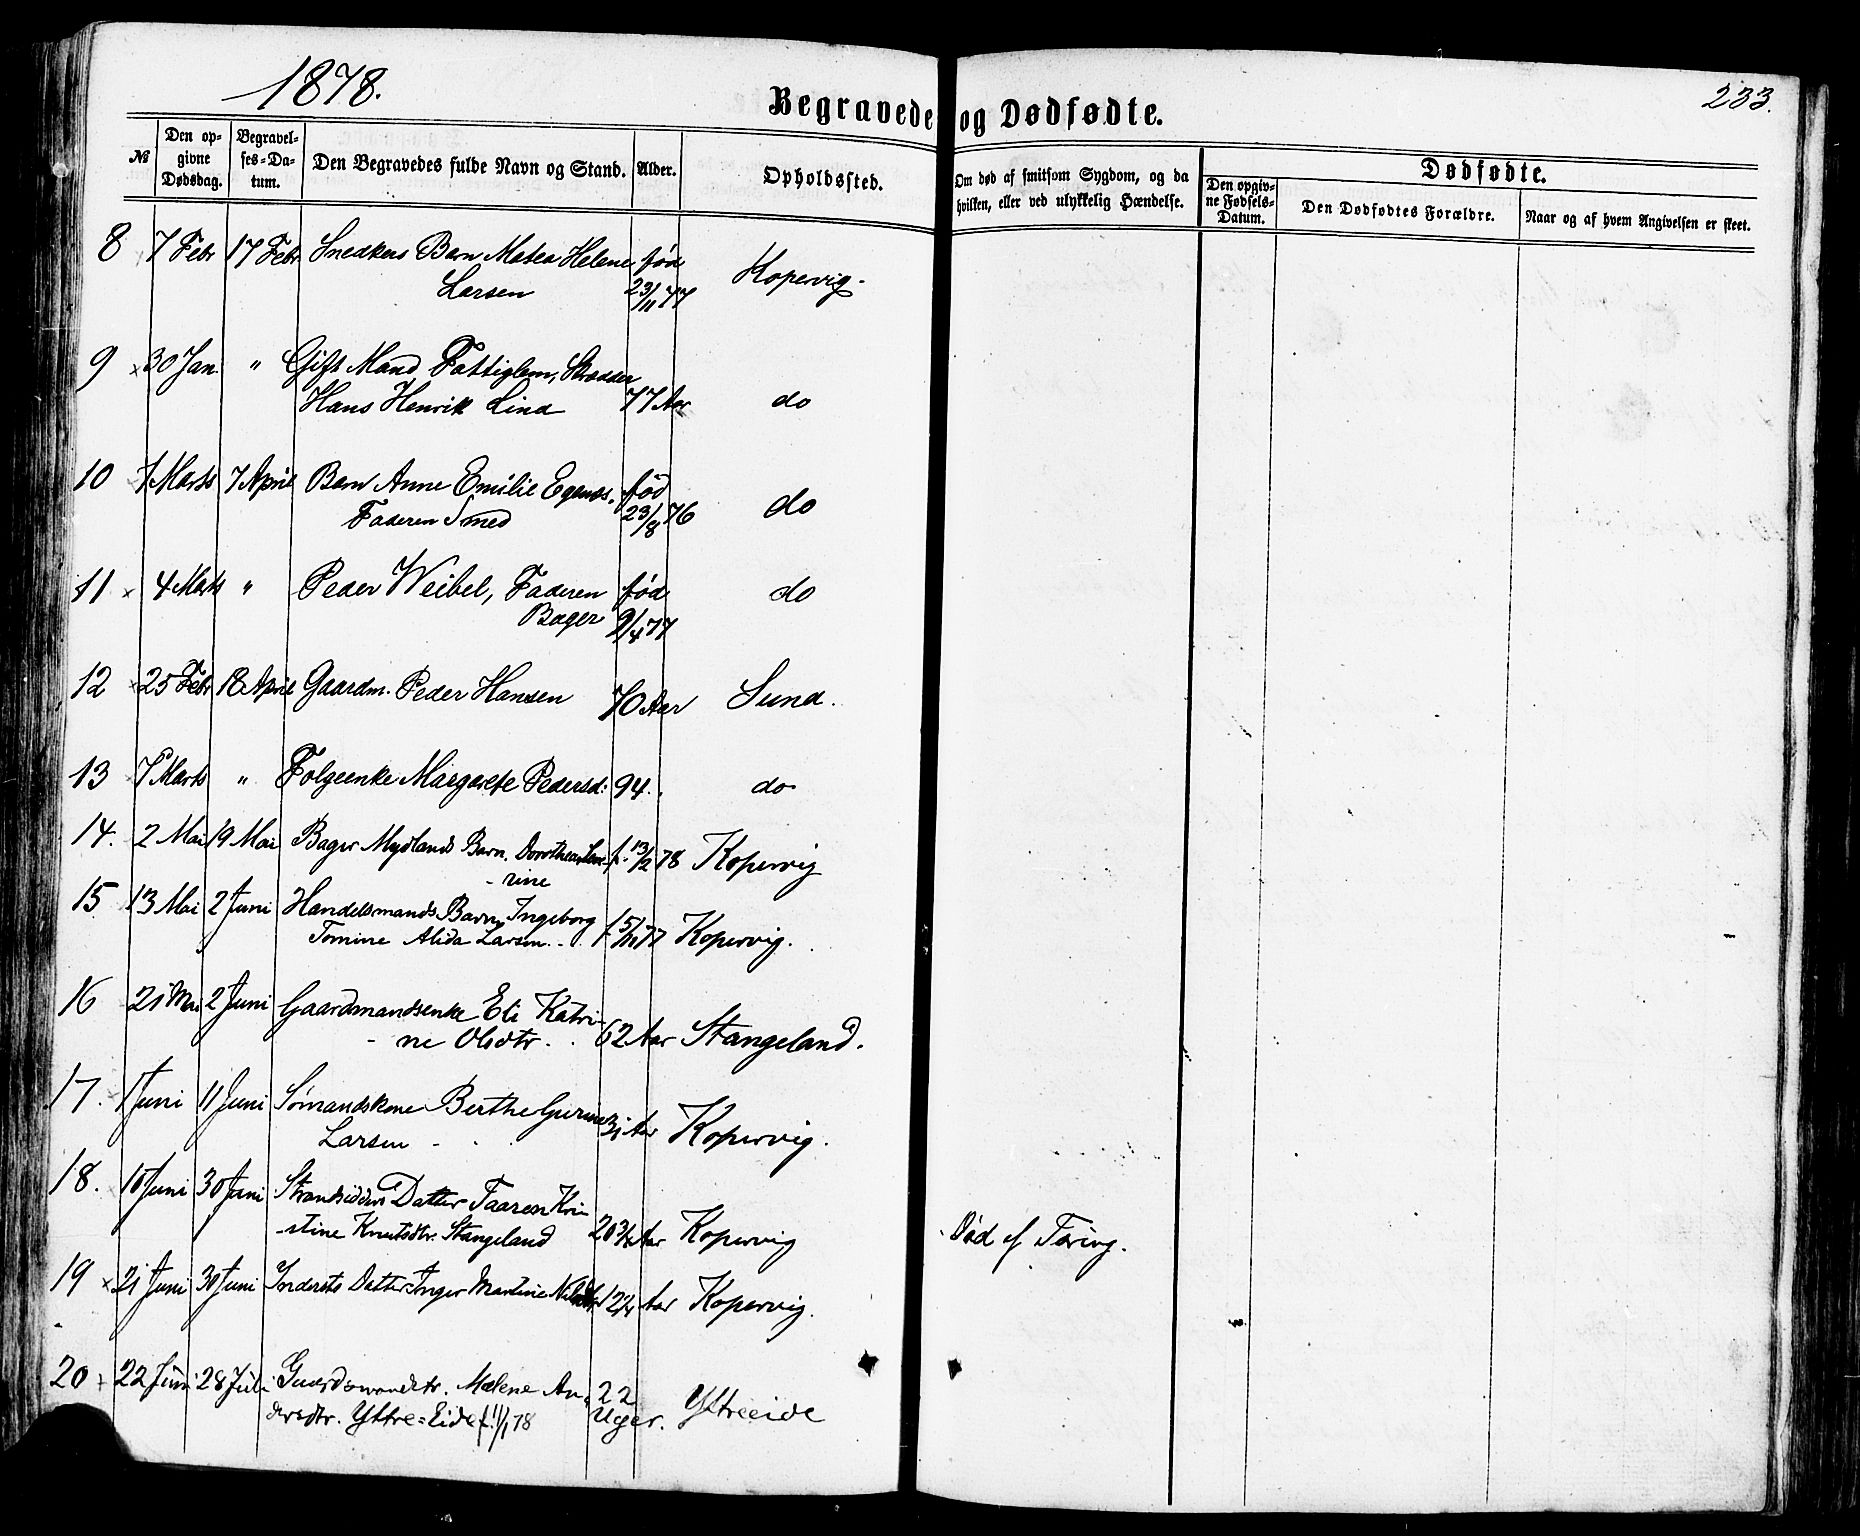 1878.
Begravede og Dødfødte.
233.
№
Den opgivne Dødsdag.
Begravelses-Datum.
Den Begravedes fulde Navn og Stand.
Alder.
Opholdssted.
Om død af smitsom Sygdom, og da hvilken, eller ved ulykkelig Hændelse.
Dødfødte.
Den opgivne Fødsels-Datum.
Den Dødfødtes Forældre.
Naar og af hvem Angivelsen er skeet.
8 7 Febr 17 Febr Snedkers Barn Matea Helene fød
Larsen 23/11 77 Kopervig.
9 × 30 Jan. " Gift Mand Fattiglem, Skrædder
Hans Henrik Lind 77 Aar do
10 7 Marts 7 April Barn Anne Emilie Egenæs. fød
Faderen Smed 23/8 76 do
11 × 4 Marts " Peder Weibel, Faderen fød do
Bager 9/4 77
12 × 25 Febr 18 April Gaardm. Peder Hansen 70 Aar Sund.
13 7 Marts " Følgeenke Margarete Pedersd: 94. do
14. 2 Mai 19 Mai Bager Mydlands Barn. Dorothea Lau- f. 13/2 78 Kopervig
-rine
15 13 Mai 2 Juni Handelsmands Barn Ingeborg
Tomine Alida Larsen. f 15/11 77 Kopervig.
16 21 Mai 2 Juni Gaardmandsenke Eli Katri-
-ne Olsdtr. 62 Aar Stangeland.
17. 1 Juni 11 Juni Sømandskone Berthe Gurine 31 Aar
Larsen Kopervig.
18. 10 Juni 30 Juni Strandsidders Datter Taaren Kri-
-stine Knutsdtr. Stangeland 20 3/4 Aar Kopervig Død af Tæring.
19 × 21 Juni 30 Juni Indersts Datter Inger Martine Nilsdtr 12 2/4 Aar Kopervig.
20 22 Juni 28 Juli Gaardmandsdtr. Malene An- 22
dersdtr. Yttre=Eide f. 11/1 78 Uger. Ytreeide